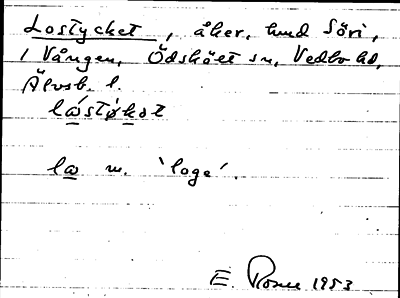 Lostycket, åker, hmd Söri,
1 Vången, Ödskölt sn, Vedbo hd,
Älvsb. l.
lǻstø̀kət
la m. 'loge'.
E. Rosen 1953